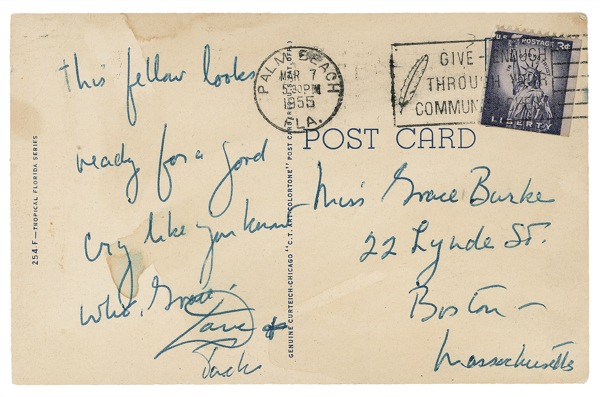 this fellow looks
ready for a good
cry like you know
who, Grace.
Love
Jack
254 F—TROPICAL FLORIDA SERIES
GENUINE CURTEICH-CHICAGO "C.T. ART-COLORTONE" POST CARD (REG. U.S. PAT. OFF.)
PALM BEACH
MAR 7
5:30 PM
1955
FLA.
GIVE - ENOUGH
THROUGH YOUR
COMMUN
U.S. POSTAGE 3¢
LIBERTY
POST CARD
Miss Grace Burke
22 Lynde St.
Boston -
Massachusetts